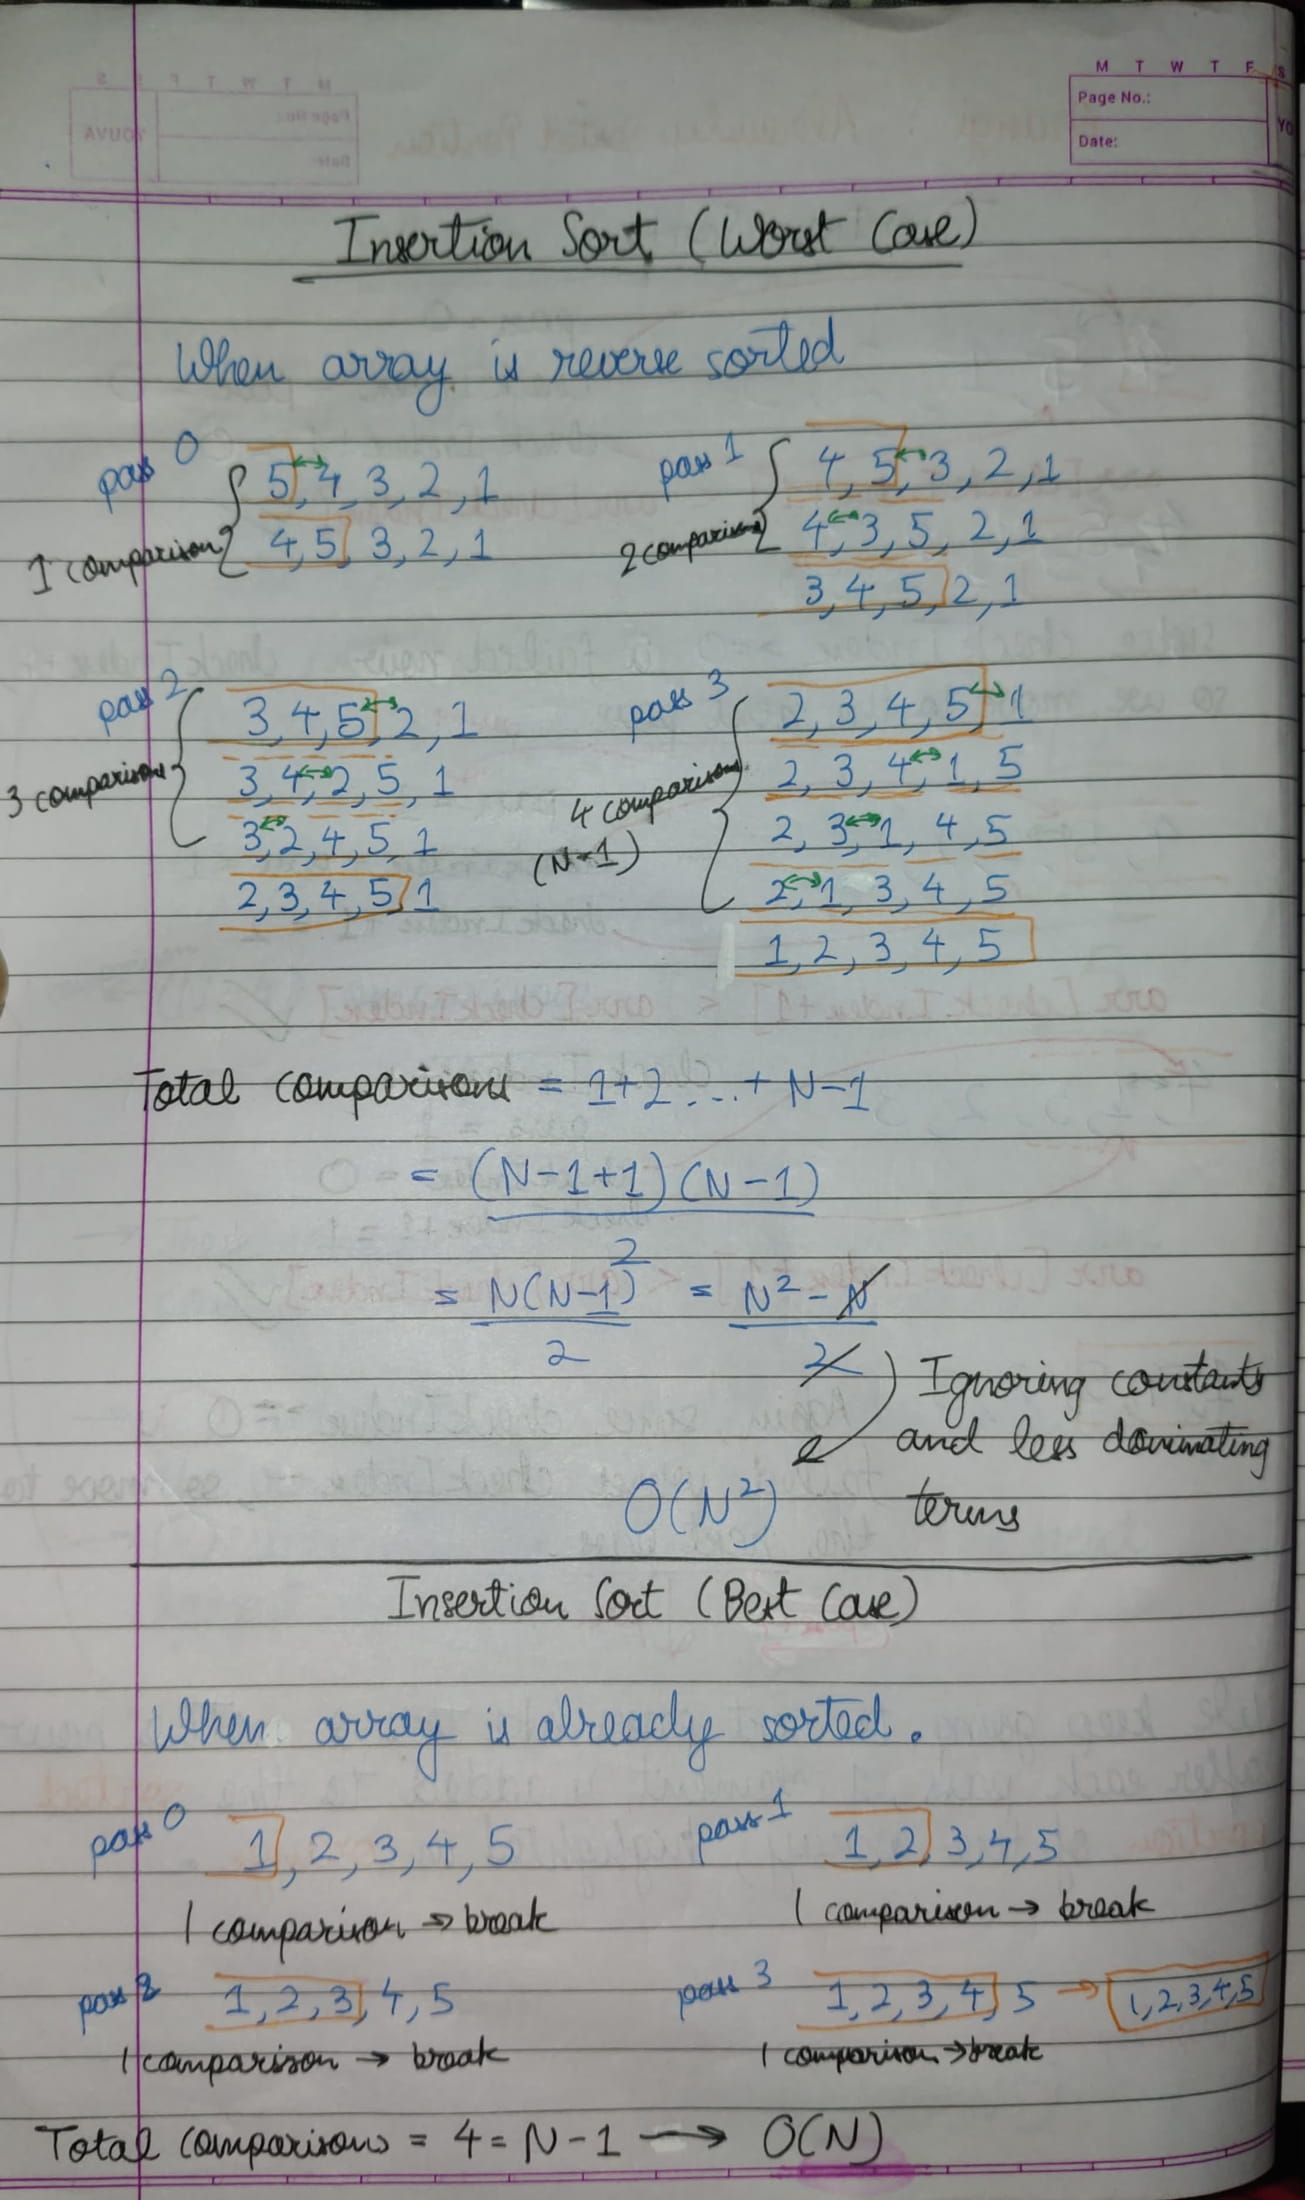 M T W T F S
Page No.:
Date:
YO
YOUVA
Insertion Sort (Worst Case)
When array is reverse sorted
pass 0
5, 4, 3, 2, 1
4, 5, 3, 2, 1
1 comparison
pass 1
4, 5, 3, 2, 1
4, 3, 5, 2, 1
3, 4, 5, 2, 1
2 comparison
pass 2
3, 4, 5, 2, 1
3, 4, 2, 5, 1
3, 2, 4, 5, 1
2, 3, 4, 5, 1
3 comparison
pass 3
2, 3, 4, 5, 1
2, 3, 4, 1, 5
2, 3, 1, 4, 5
2, 1, 3, 4, 5
1, 2, 3, 4, 5
4 comparison
(N-1)
Total comparisons = 1+2...+ N-1
= (N-1+1)(N-1)
2
= N(N-1) = N² - N
2 2
Ignoring constants
and less dominating
terms
O(N²)
Insertion Sort (Best Case)
When array is already sorted.
pass 0 1, 2, 3, 4, 5
1 comparison → break
pass 1 1, 2, 3, 4, 5
1 comparison → break
pass 2 1, 2, 3, 4, 5
1 comparison → break
pass 3 1, 2, 3, 4, 5 → 1, 2, 3, 4, 5
1 comparison → break
Total comparisons = 4 = N-1 → O(N)